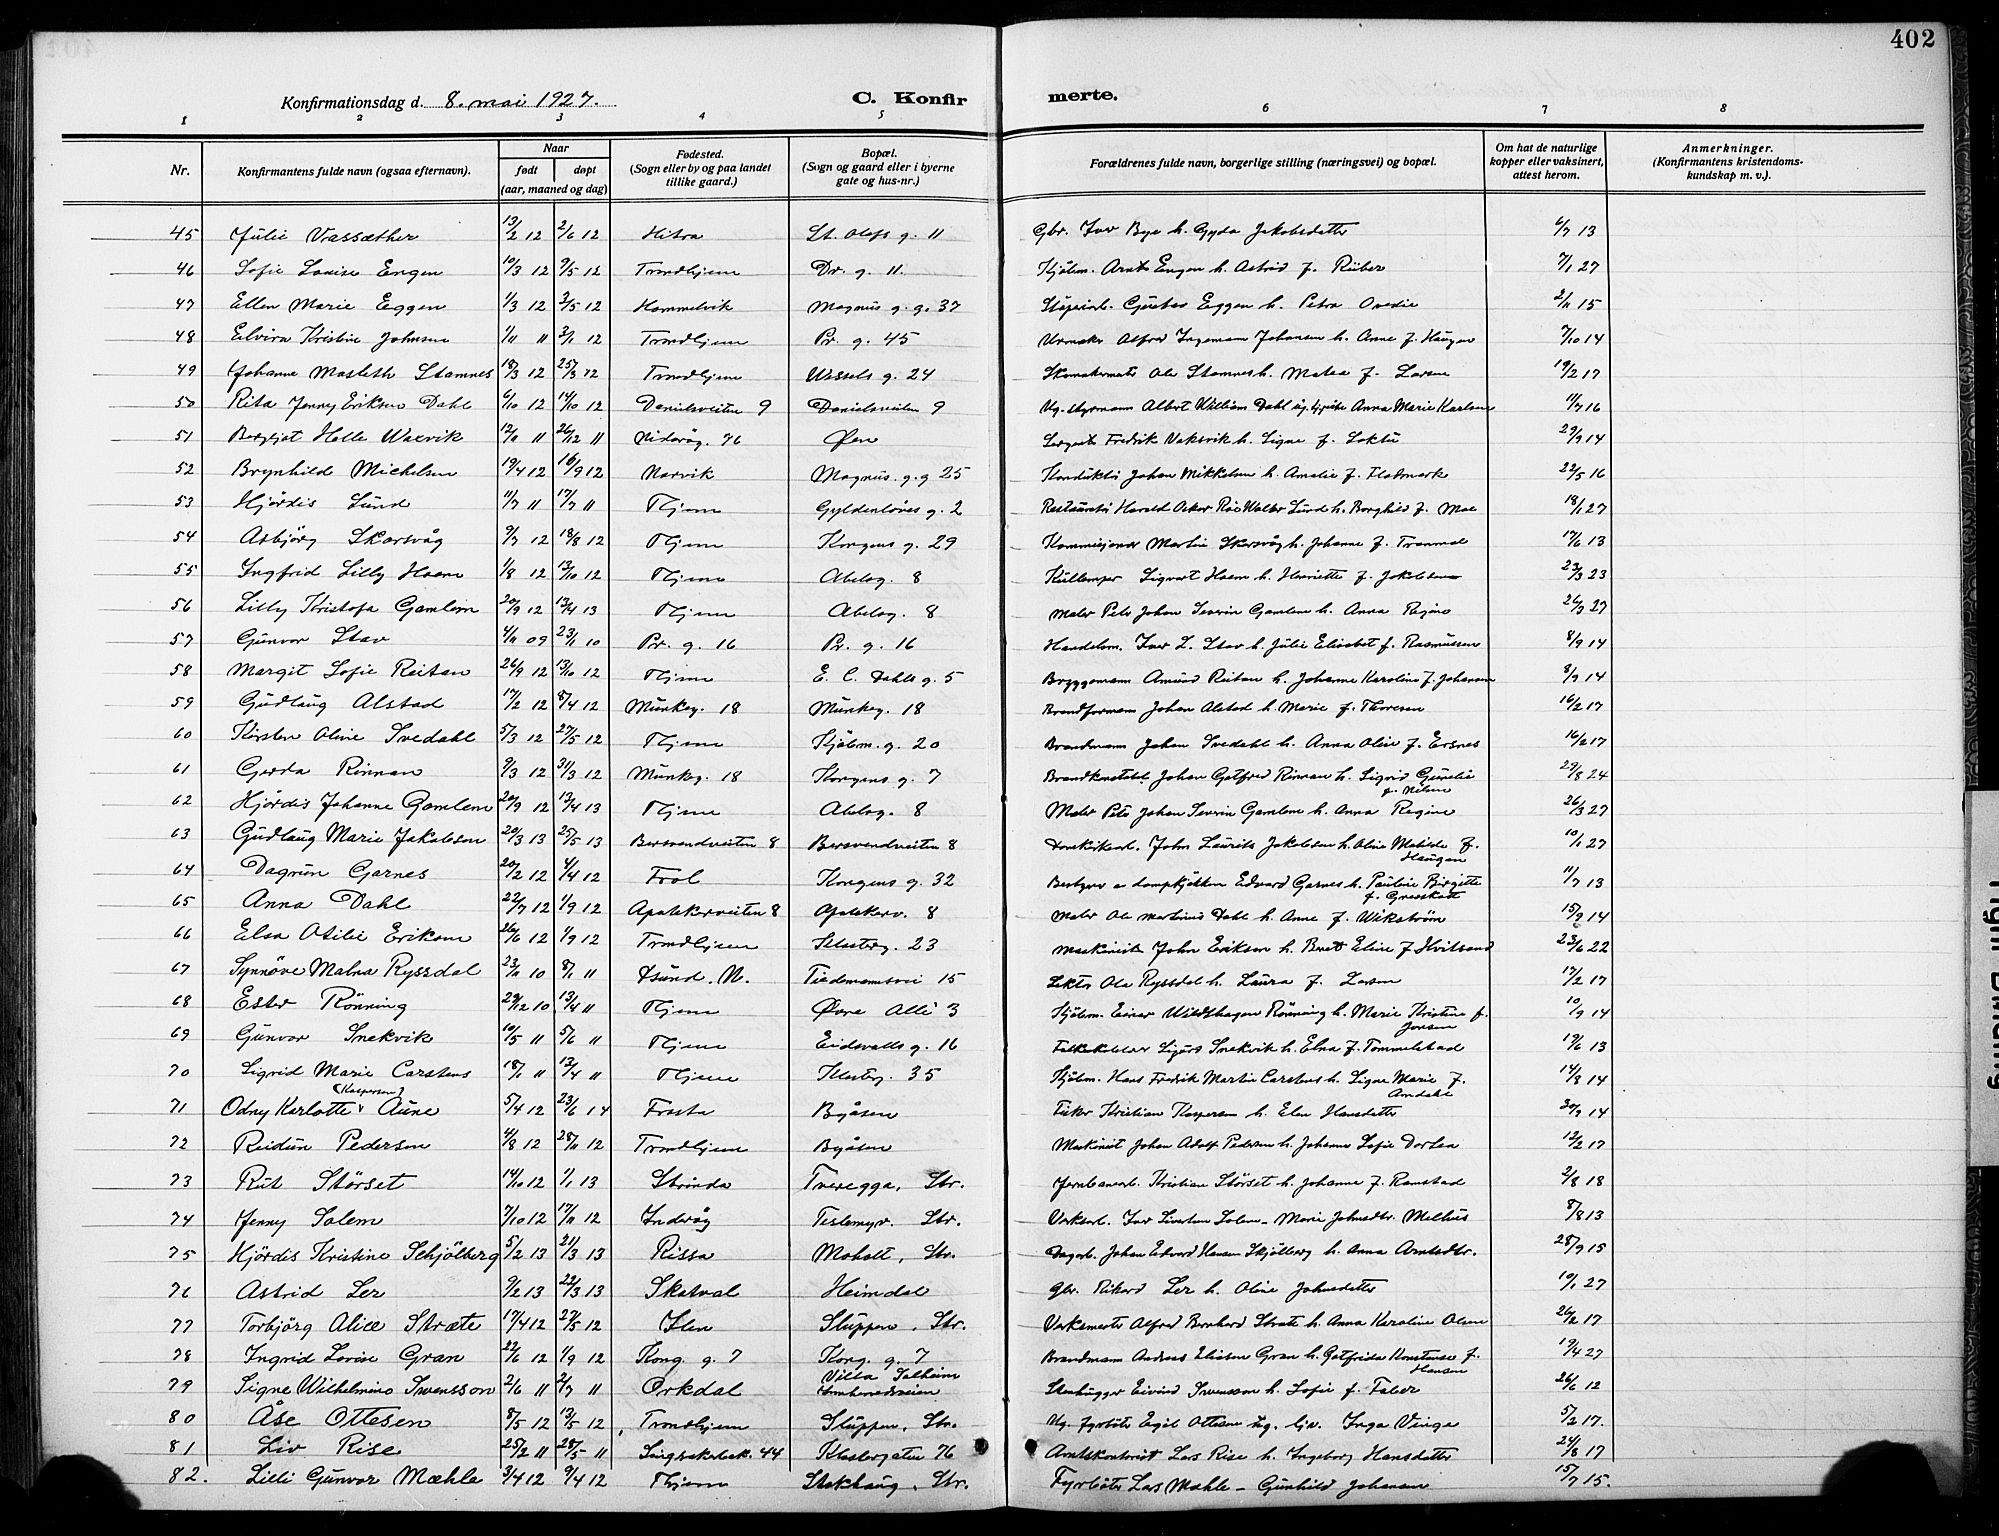 402
Konfirmationsdag d. 8. mai 1927.
C. Konfir merte.
1 2 3 4 5 6 7 8
Nr. Konfirmantens fulde navn (ogsaa efternavn). Naar født døpt (aar, maaned og dag) Fødested. (Sogn eller by og paa landet tillike gaard.) Bopæl. (Sogn og gaard eller i byerne gate og hus-nr.) Forældrenes fulde navn, borgerlige stilling (næringsvei) og bopæl. Om hat de naturlige kopper eller vaksinert, attest herom. Anmerkninger. (Konfirmantens kristendoms-kundskap m. v.).
45 Julie Vassæther 13/2 12 2/6 12 Hitra St. Olafs g. 11 Gbr. Ivar Bye h. Gyda Jakobsdatter 6/7 13
46 Sofie Louise Engen 10/3 12 9/5 12 Trondhjem Dr. g. 11. Kjølm. Arnt Engen h. Astrid f. Riiber 7/1 27
47 Ellen Marie Eggen 1/3 12 3/5 12 Hommelvik Magnus g. g. 37 Eggen h. Petra Ovedie 2/11 15
48 Elvira Kristine Johnsen 1/11 11 3/1 12 Trondhjem Pr. g. 45 Urmaker Alfred Ingeman Johansen h. Anne f. Haugen 7/10 14
49 Johanne Masleth Stamnes 18/3 12 25/3 12 Trondhjem Wessels g. 24 Skomakermster Ole Stamnes h. Matea f. Larsen 19/2 17
50 Rita Jenny Eriksen Dahl 6/10 12 14/10 12 Danielsveiten 9 Danielsveiten 9 Ug. styrmann Albert William Dahl ug. Anna Marie Karlsen 11/7 16
51 Bergljot Helle Waxvik 12/11 11 26/12 11 Nidarvåg. 76 Øen Sergeant Fredrik Vaksvik h. Signe f. 29/9 14
52 Brynhild Michelsen 19/4 12 16/9 12 Narvik Magnus. g. g 25 Konduktør Johan Mikkelsen h. Amalie f. Flatmark 22/5 16
53 Hjördis Lund 11/7 11 17/7 11 Thjem Gyldenløves g. 2 Restauratør Harald Oskar Walter Lund h. Borghild f. Moe 18/1 27
54 Asbjörg Skarsvåg 9/7 12 18/8 12 Thjem Kongens g. 29 Kommisjonær Martin Skarsvåg h. Johanne f. Tranmæl 17/6 13
55 Ingfrid Lilly Hoem 1/8 12 13/10 12 Thjem Abelsg. 8 Kullemper Sigvart Hoem h. Henriette f. Jakobsen 23/3 23
56 Lilly Kristofa Gamlem 20/9 12 13/4 13 Thjem Abelsg. 8 Maler Peter Johan Severin Gamlem h. Anna Regine 26/3 27
57 Gunvor Stav 4/11 09 23/1 10 Pr. g. 16 Pr. g. 16 Handelsm. Iver L. Stav h. Julie Elisabet f. Rasmussen 8/9 14
58 Margit Sofie Reitan 26/9 12 13/10 12 Thjem E. C. Dahls g. 5 Bryggemann Amund Reitan h. Johanne Karoline f. Johansen 8/9 14
59 Gudlaug Alstad 17/2 12 8/4 12 Munkeg. 18 Munkeg. 18 Brandformann Johan Alstad h. Marie f. Thoresen 16/2 17
60 Kirsten Oline Svedahl 5/3 12 27/5 12 Thjem Kjølm. g. 20 Brandmann Johan Svedahl h. Anna Oline f. Ersnes 16/2 17
61 Gerda Rinnan 9/3 12 31/3 12 Munkeg. 18 Kongens g. 7 Brandkonstabel Johan Gotfred Rinnan h. Sigrid Gunelie f. Nilsen 29/8 24
62 Hjördis Johanne Gamlem 20/9 12 13/4 13 Thjem Abelsg. 8 Maler Peter Johan Severin Gamlem h. Anna Regine 26/3 27
63 Gudlaug Marie Jakobson 20/3 13 25/5 13 Bersvendveiten 8 Bersvendveiten 8 Domkirkearb. John Laurits Jakobsen h. Oline Matilde f. Haugan 10/1 27
64 Dagrun Garnes 20/2 12 4/4 12 Frol Kongens g. 32 Bestyrer a dampkjøkken Edvard Garnes h. Pauline Birgitte f. Gresskott 11/7 13
65 Anna Dahl 22/7 12 1/9 12 Apotekerveiten 8 Apotekerv. 8 Maler Ole Martinus Dahl h. Anne f. Wikstrøm 15/9 14
66 Elsa Otilie Eriksen 26/6 12 1/9 12 Trondhjem Klosterg. 23 Maskinist John Eriksen h. Beret Eline f. Hvitsand 23/6 22
67 Synnöve Malna Ryssdal 23/11 10 8/1 11 Xsund. N. Tiedemannsvei 15 Lektor Ola Ryssdal h. Laura f. Larsen 17/2 17
68 Ester Rönning 29/12 10 13/4 11 Thjem Øvre Allé 3 Kjølm. Einar Wildthagen Rönning h. Marie Kristine f. Jonsen 10/9 14
69 Gunvor Snekvik 10/5 11 5/6 11 Thjem Eidsvolls g. 16 Sigurd Snekvik h. Elna f. Tommelstad 19/6 13
70 Sigrid Marie Carstens 18/1 11 13/4 11 Thjem Klosterg. 35 Kjølm. Hans Fredrik Martin Carstens h. Signe Marie f. Amdahl 14/8 14
71 Odny Karlotte (Kaspersen) Aune 5/4 12 23/6 14 Frosta Byåsen Fisker Kristian Kaspersen h. Elen Hansdatter 30/9 14
72 Reidun Pedersen 4/8 12 28/11 12 Trondhjem Byåsen Maskinist Johan Adolf Pedersen h. Johanne Sofie Dortea 12/2 17
73 Rut Störset 14/10 12 1/1 13 Strinda Tveregga, Str. Jernbanearb. Kristian Störset h. Johanne f. Ramstad 2/8 18
74 Jenny Solem 7/10 12 17/11 12 Inderöy Teslemyr. Str. Verksarb. Ivar Solem - Marie Johnsdtr. Melhus 8/8 13
75 Hjördis Kristine Schjölberg 5/2 13 21/3 13 Rissa Moholt, Str. Dagarb. Johan Edvard Hansen Skjölberg h. Anna Arntsdtr. 28/9 15
76 Astrid Ler 9/2 13 22/3 13 Skatval Heimdal Gbr. Rikard Ler h. Oline Johnsdatter 10/1 27
77 Torbjörg Alice Stræte 17/4 12 27/5 12 Ilen Sluppen, Str. Verksmester Alfred Bernhard Stræte h. Anna Karoline Olsen 26/2 17
78 Ingrid Lovise Gran 22/6 12 1/9 12 Kong. g. 7 Kong. g. 7 Brandmann Andreas Eliasen Gran h. Gotfrida Konstanse f. Hansen 19/4 27
79 Signe Wilhelmine Svensson 2/6 11 2/7 11 Orkdal Villa Solheim Stenhugger Eivind Svensson h. Sofie f. Faber 26/6 12
80 Åse Ottesen 8/5 12 13/5 12 Trondhjem Sluppen, Str. Ug. fyrbøter Egil Ottesen ug. tjv. Inga Vinge 5/2 17.
81 Liv Rise 25/2 11 28/5 11 Singsakerbak. 44 Klostergaten 76 Amtskontorist Lars Rise h. Ingeborg Hansdatter 24/8 17
82. Lilli Gunvor Mæhle 3/4 12 9/4 12 Thjem Stokhaug, Str. Fyrbøter Lars Mæhle - Gunhild Johansen 15/7 15.